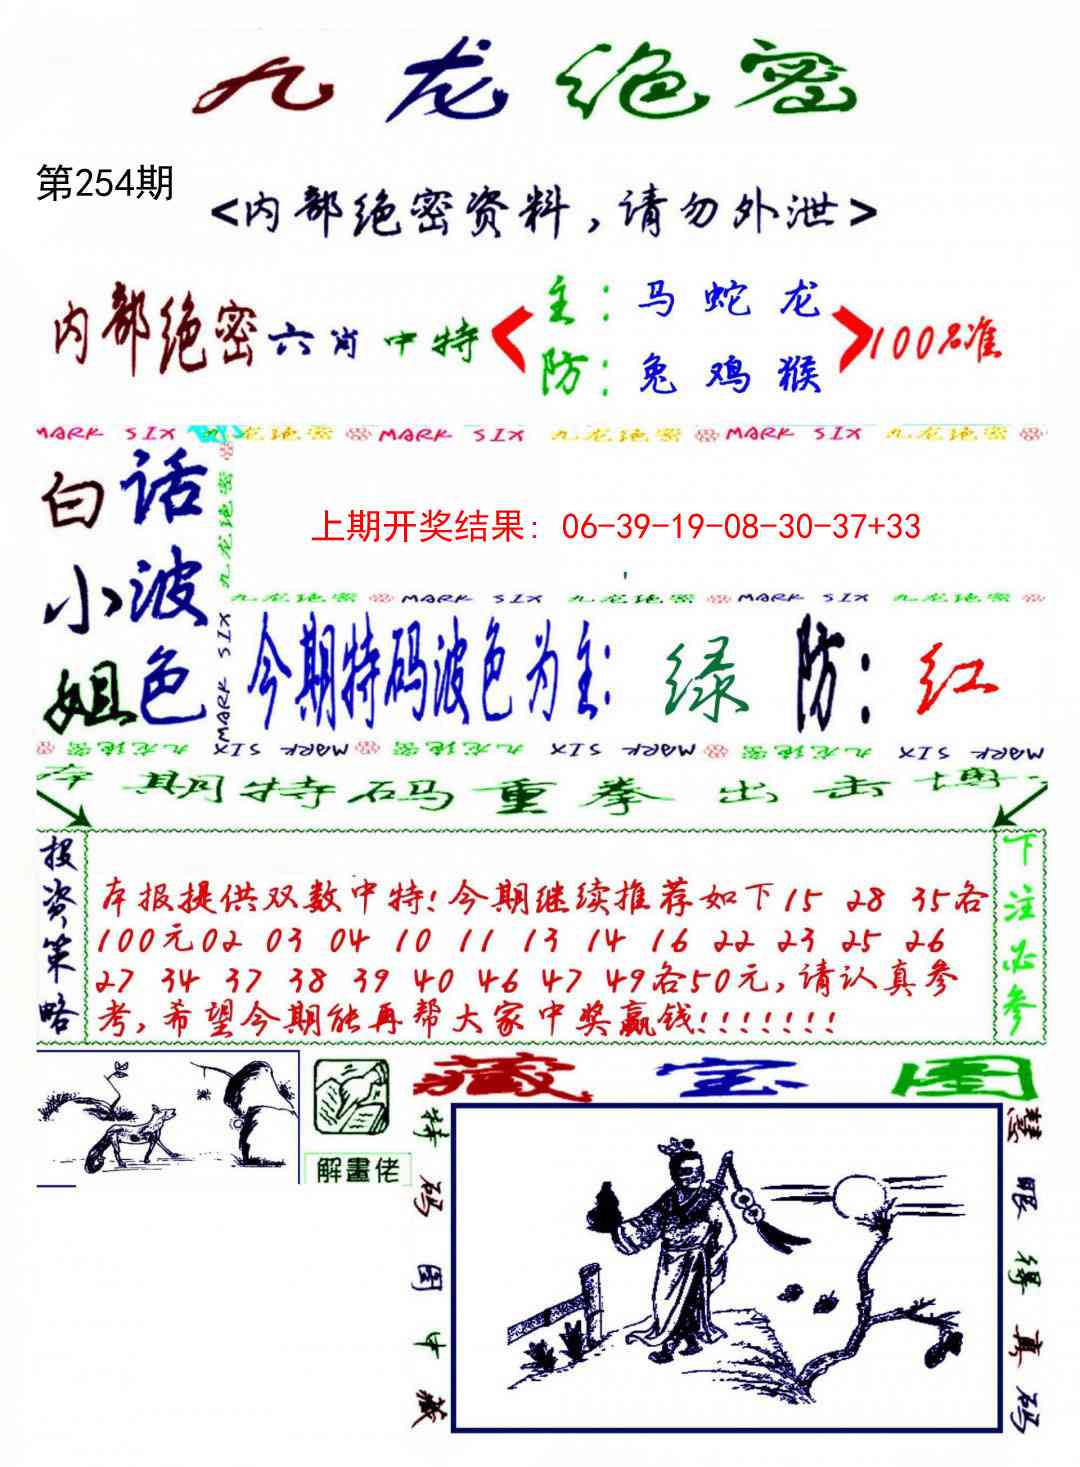 九龙绝密
第254期
<内部绝密资料,请勿外泄>
内部绝密六肖中特
主:马 蛇 龙
防:兔 鸡 猴
100%准
MARK SIX 九龙绝密 MARK SIX 九龙绝密 MARK SIX 九龙绝密
白小姐
话波色
九龙绝密
MARK SIX
上期开奖结果: 06-39-19-08-30-37+33
九龙绝密 MARK SIX 九龙绝密 MARK SIX 九龙绝密
今期特码波色为主: 绿 防: 红
九龙绝密 MARK SIX 九龙绝密 MARK SIX 九龙绝密 MARK SIX
本期特码重拳出击博
投资策略
本报提供双数中特!今期继续推荐如下15 28 35各
100元02 03 04 10 11 13 14 16 22 23 25 26
27 34 37 38 39 40 46 47 49各50元,请认真参
考,希望今期能再帮大家中奖赢钱!!!!!!!
下注必参
解畫佬
藏宝图
特码图中藏
慧眼得真码